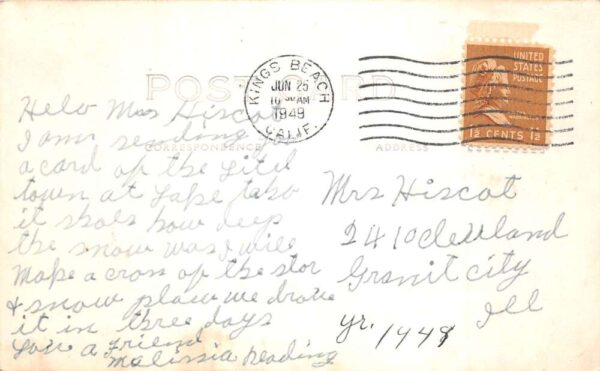 POST CARD
CORRESPONDENCE
ADDRESS
KINGS BEACH
JUN 25
10 AM
1949
CALIF.
UNITED
STATES
POSTAGE
1½ CENTS 1½
Helo Mrs Hiscot
I am sending
a card of the Litel
town at Lake taho
it shols how deep
the snow was I will
make a cross of the stor
& snow plaw we drove
it in three days
Love a Friend
Malissia Reading
Mrs Hiscot
2410 Clevland
Granit City
Ill
yr. 1948